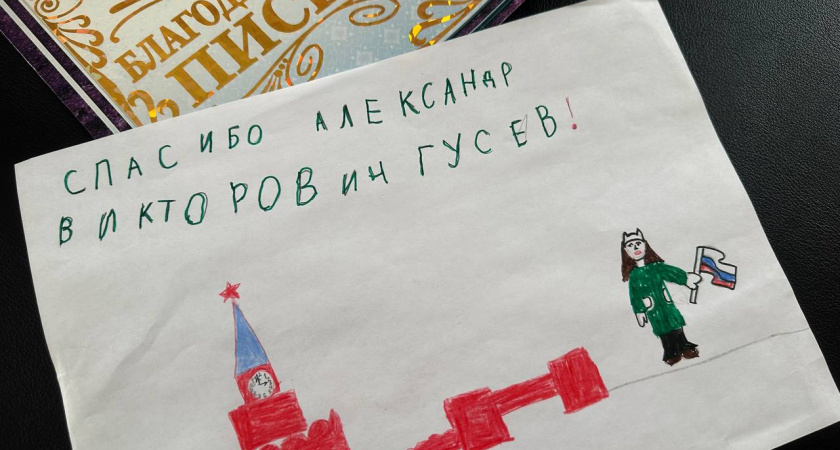 БЛАГОД
ПИС
СПАСИБО АЛЕКСАНДР
ВИКТОРОВИЧ ГУСЕВ!